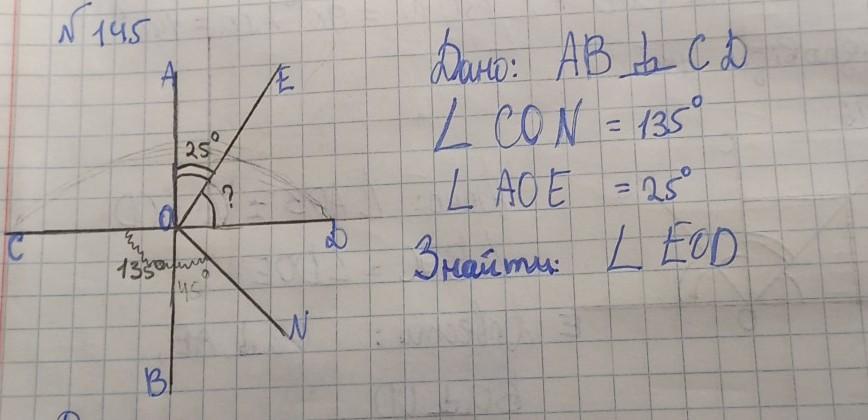 N 145
A
E
25°
?
O
C
D
135°
45°
N
B
Дано: AB ⊥ CD
∠ CON = 135°
∠ AOE = 25°
Знайти: ∠ EOD